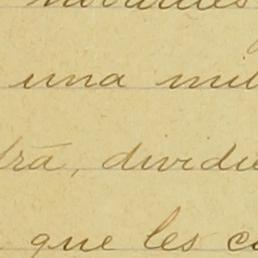 una mil
drá, dividi
que les c